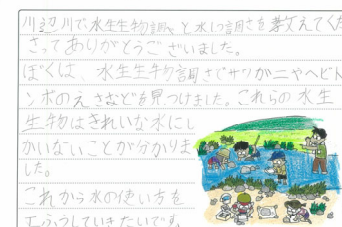 川辺川で水生生物調べと水しつ調さを教えてくだ
さってありがとうございました。
ぼくは、水生生物調さでサワガニやヘビト
ンボのえさなどを見つけました。これらの水生
生物はきれいな水にし
かいないことが分かりま
した。
これから水の使い方を
くふうしていきたいです。